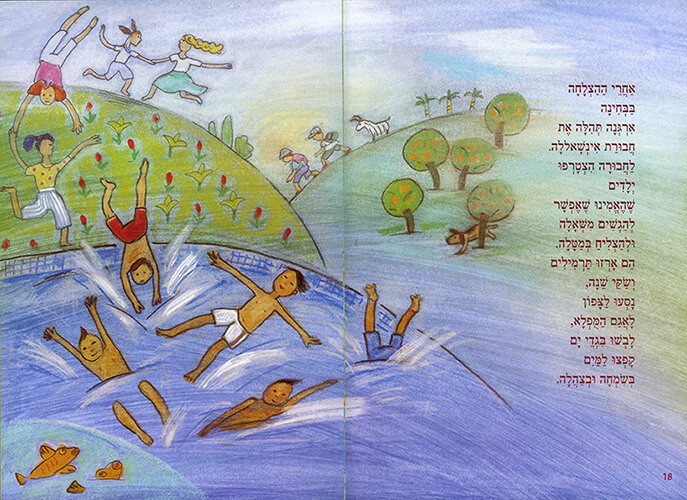 אַחֲרֵי הַהַצְלָחָה
בַּבְּחִינָה
אִרְגְּנָה תְּהִלָּה אֶת
חֲבוּרַת אִינְשַׁאלְלַה.
לַחֲבוּרָה הִצְטָרְפוּ
יְלָדִים
שֶׁהֶאֱמִינוּ שֶׁאֶפְשָׁר
לְהַגְשִׁים מִשְׁאָלָה
וּלְהַצְלִיחַ בַּמַּטָּלָה.
הֵם אָרְזוּ תַּרְמִילִים
וְשַׂקֵּי שֵׁנָה,
נָסְעוּ לַצָּפוֹן
לָאֲגַם הַמֻּפְלָא,
לָבְשׁוּ בִּגְדֵי יָם
קָפְצוּ לַמַּיִם
בְּשִׂמְחָה וּבְצָהֳלָה.
18